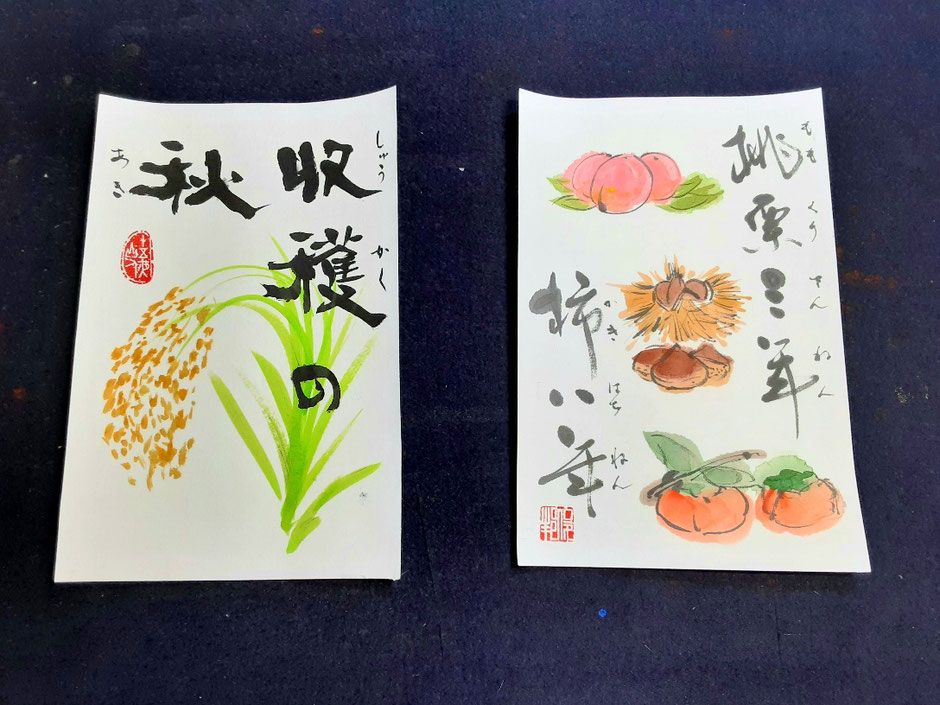 収穫の
しゅうかく
秋
あき
桃栗三年
ももくりさんねん
柿八年
かきはちねん